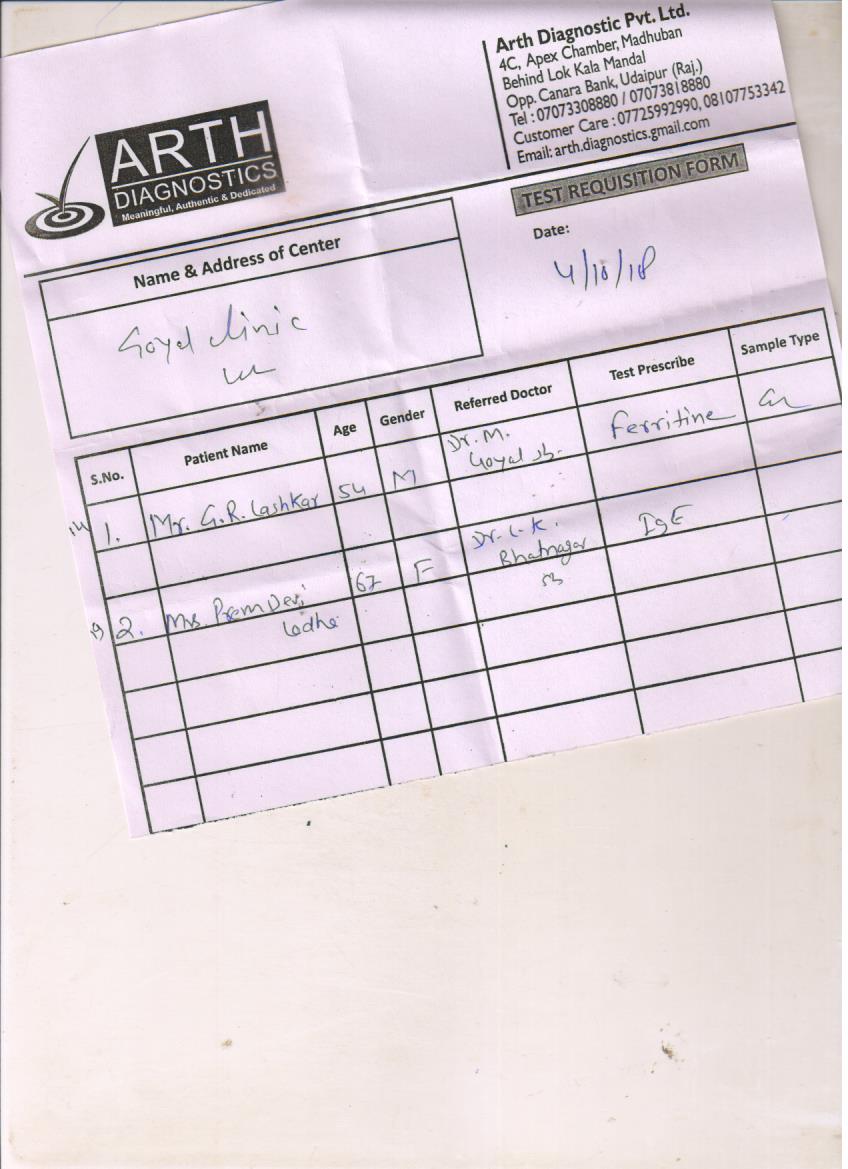 Arth Diagnostic Pvt. Ltd.
4C, Apex Chamber, Madhuban
Behind Lok Kala Mandal
Opp. Canara Bank, Udaipur (Raj.)
Tel : 07073308880 / 07073818880
Customer Care : 07725992990, 08107753342
Email: arth.diagnostics.gmail.com
ARTH
DIAGNOSTICS
Meaningful, Authentic & Dedicated
TEST REQUISITION FORM
Date:
4/10/18
Name & Address of Center
Goyal clinic
S.No. Patient Name Age Gender Referred Doctor Test Prescribe Sample Type
1. Mr. G.R. Lashkar 54 M Dr. M. Ferritine
Goyal sb.
2. Mrs. Prem Devi 67 F Dr. L.K. IgE
Lodha Bhatnagar
sb